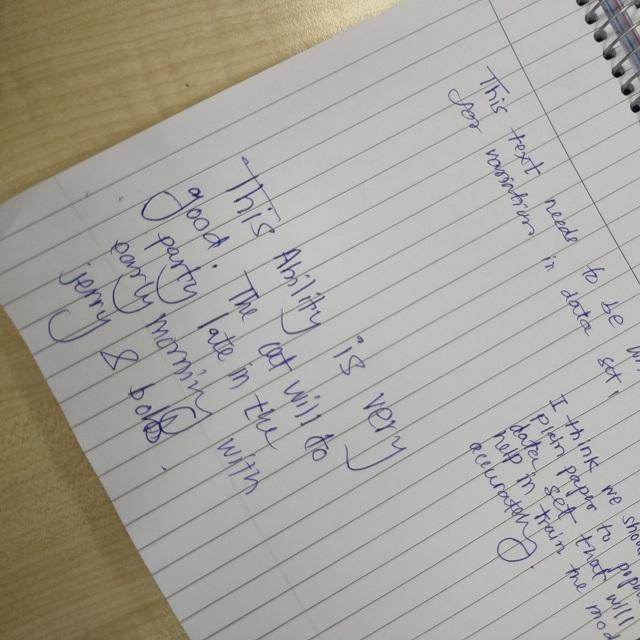 This text needs to be
for variation in data set.
I think we
plain paper to
data set that will
help in train the
accurately.
This Ability is very
good. The cat will do
party late in the
early morning with
jerry &